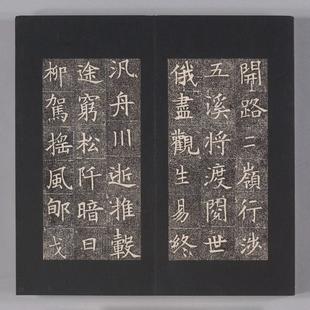 開路二嶺行涉
五溪将渡閱世
俄盡觀生易終
汎舟川逝推轂
途窮松阡暗日
柳駕摇風郇戈